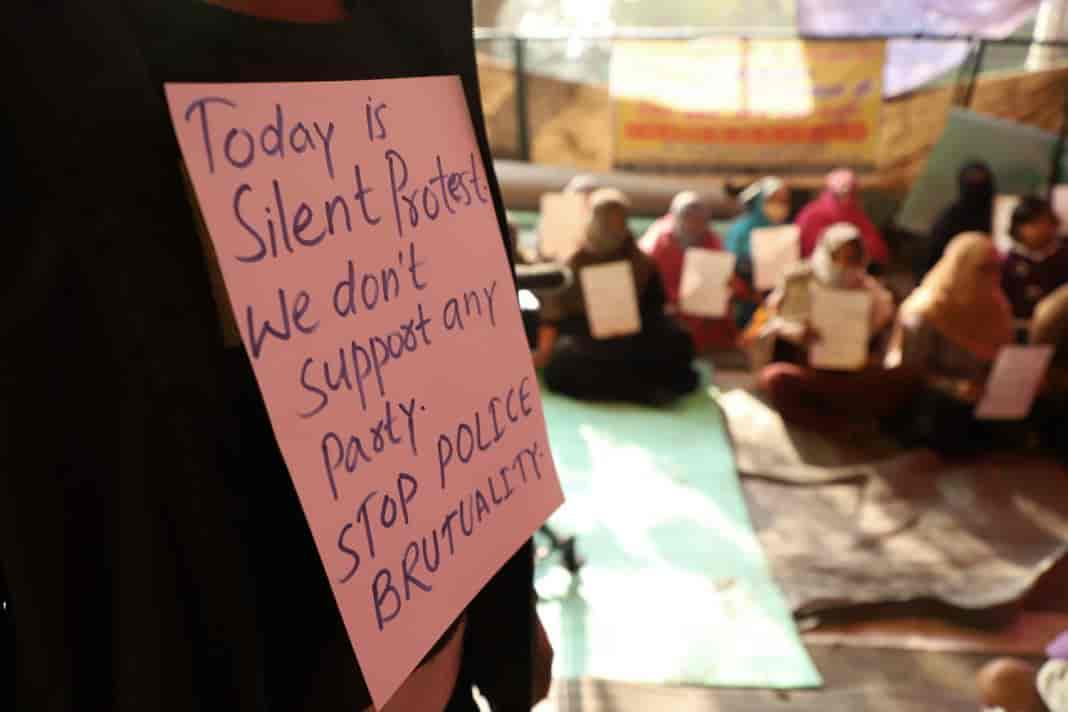 Today is
Silent Protest.
We don't
support any
Party.
STOP POLICE
BRUTUALITY.